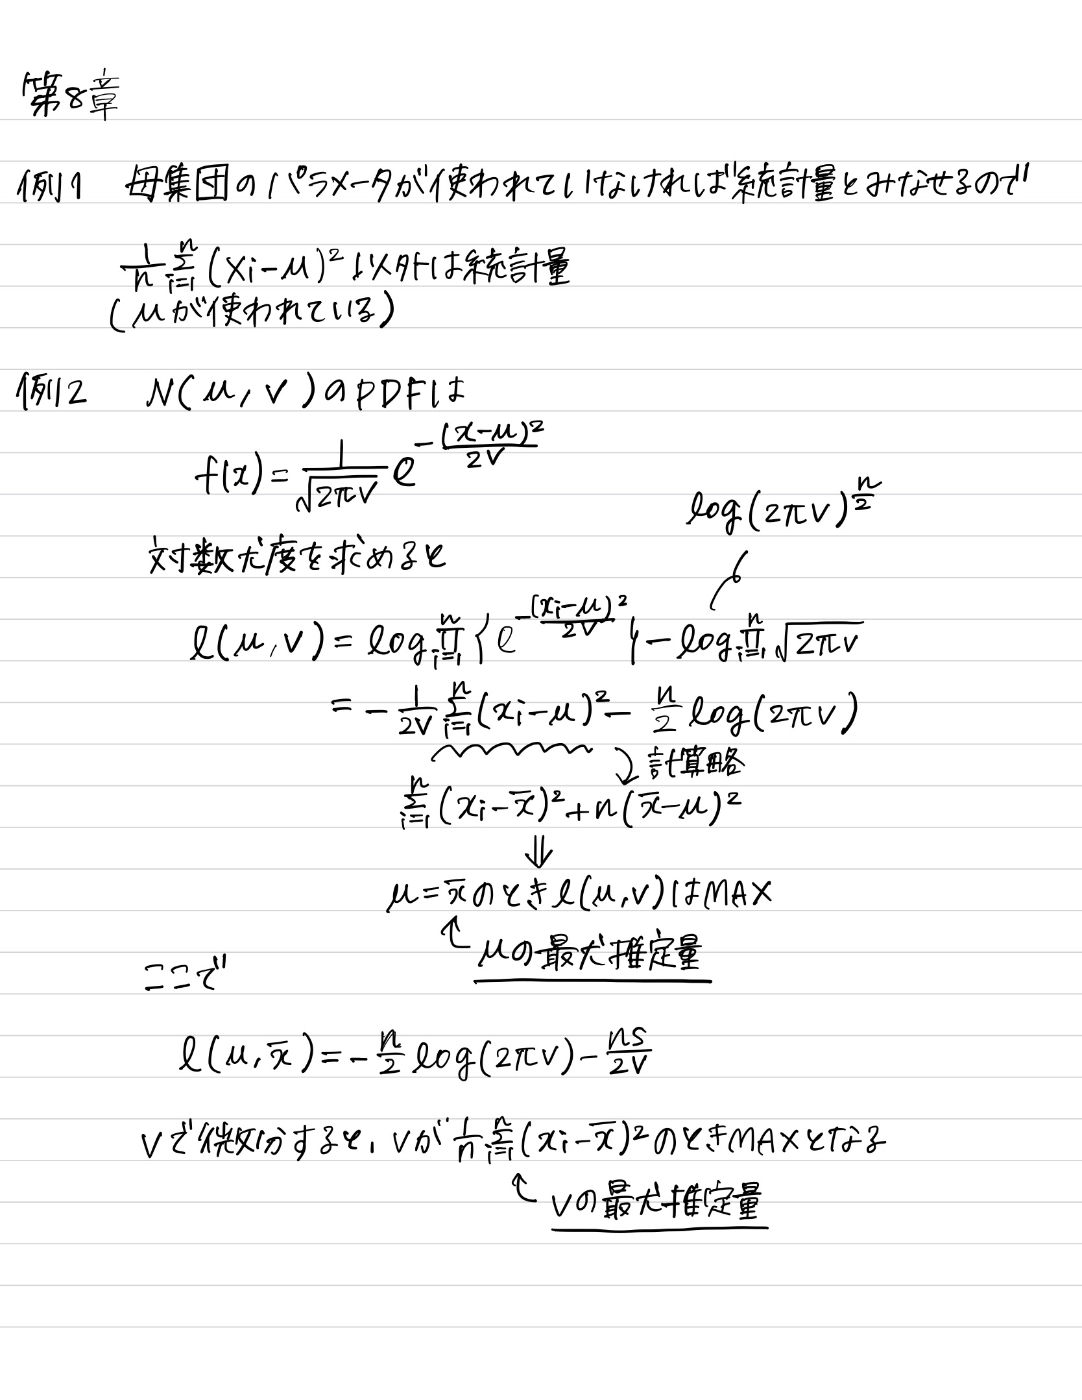 第8章
例1 母集団のパラメータが使われていなければ統計量とみなせるので
1/n Σ_{i=1}^{n} (Xi-μ)² 以外は統計量
(μが使われている)
例2 N(μ, v)のPDFは
f(x) = 1/√(2πv) e^{-(x-μ)²/2v}
log(2πv)^{n/2}
対数尤度を求めると
l(μ, v) = log Π_{i=1}^{n} {e^{-(xi-μ)²/2v}} - log Π_{i=1}^{n} √(2πv)
= -1/2v Σ_{i=1}^{n} (xi-μ)² - n/2 log(2πv)
計算略
Σ_{i=1}^{n} (xi-x̄)² + n(x̄-μ)²
⇓
μ=x̄のときl(μ,v)はMAX
↑ μの最尤推定量
ここで
l(μ, x̄) = -n/2 log(2πv) - ns/2v
vで微分すると, vが 1/n Σ_{i=1}^{n} (xi-x̄)² のときMAXとなる
↑ vの最尤推定量